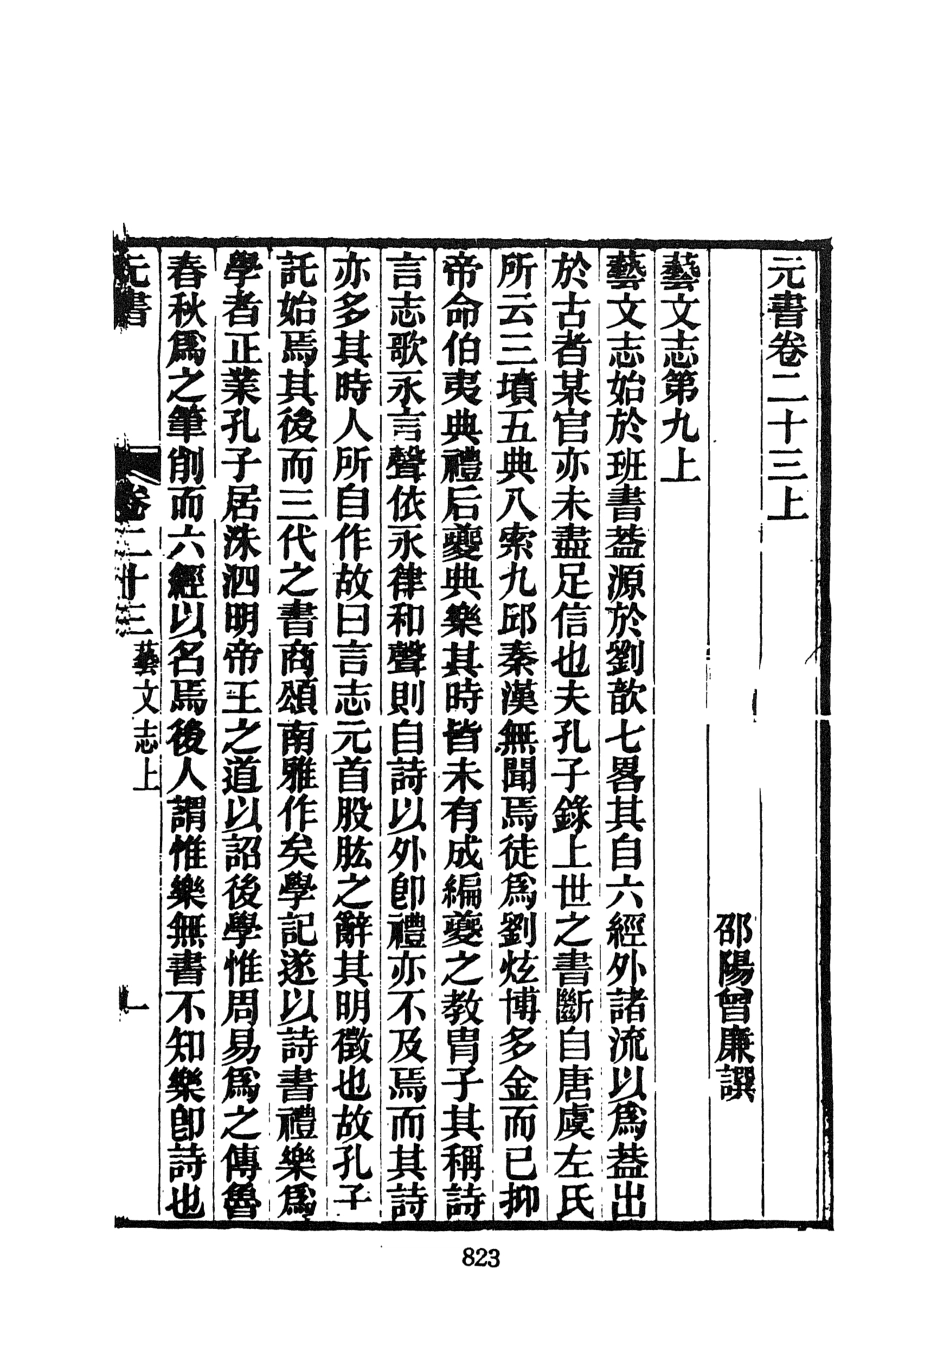 元書卷二十三上
邵陽曾廉譔
藝文志第九上
藝文志始於班書葢源於劉歆七畧其自六經外諸流以爲葢出
於古者某官亦未盡足信也夫孔子錄上世之書斷自唐虞左氏
所云三墳五典八索九邱秦漢無聞焉徒爲劉炫博多金而已抑
帝命伯夷典禮后夔典樂其時皆未有成編夔之教冑子其稱詩
言志歌永言聲依永律和聲則自詩以外卽禮亦不及焉而其詩
亦多其時人所自作故曰言志元首股肱之辭其明徵也故孔子
託始焉其後而三代之書商頌南雅作矣學記遂以詩書禮樂爲
學者正業孔子居洙泗明帝王之道以詔後學惟周易爲之傳魯
春秋爲之筆削而六經以名焉後人謂惟樂無書不知樂卽詩也
元書 卷二十三 藝文志上 一
823